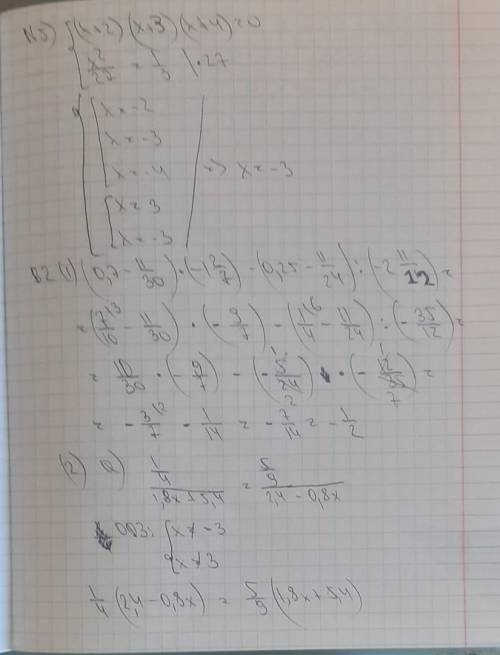 №3) { (x+2)(x+3)(x+4)=0
x²/27 = 1/3 | ·27
x=-2
x=-3
x=-4 => x=-3
x=3
x=-3
В2 (1) (0,7 - 11/30) · (-1 2/7) - (0,25 - 11/24) : (-2 11/12) =
= (7/10 - 11/30) · (-9/7) - (1/4 - 11/24) : (-35/12) =
= 10/30 · (-9/7) - (-5/24) · (-12/35) =
= -3/7 - 1/14 = -7/14 = -1/2
(2) a) (1/4)/(1,8x+5,4) = (5/9)/(2,4-0,8x)
ОДЗ: { x≠-3
x≠3
1/4 (2,4-0,8x) = 5/9 (1,8x+5,4)